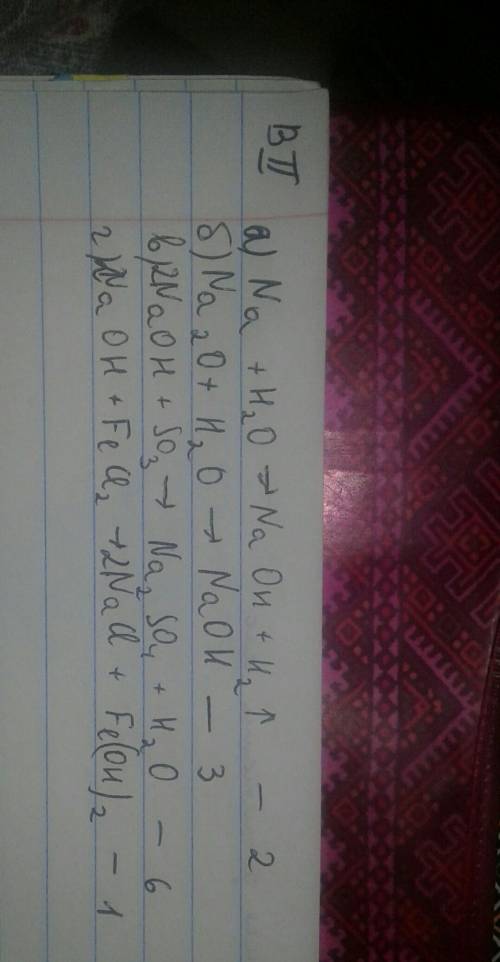 В II
а) Na + H₂O → NaOH + H₂↑ – 2
б) Na₂O + H₂O → NaOH – 3
в) 2NaOH + SO₃ → Na₂SO₄ + H₂O – 6
г) 2NaOH + FeCl₂ → 2NaCl + Fe(OH)₂ – 1